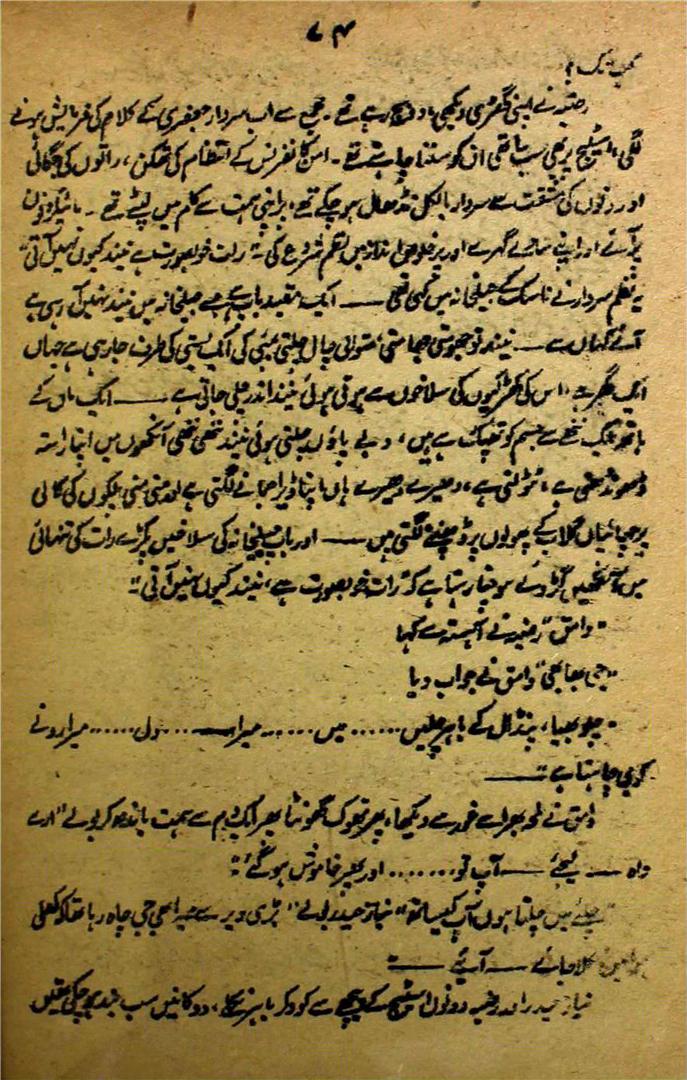 ۷۴
رضیہ نے اپنی گھڑی دیکھی، دو بج رہے تھے۔ مجمع سے اب سردار جعفری کے کلام کی فرمائش ہونے
لگی، اسٹیج پر بھی سب ساتھی ان کو سننا چاہتے تھے۔ امن کانفرنس کے انتظام کی تھکن، راتوں کی جگائی
اور دنوں کی مشقت سے سردار بالکل نڈھال ہو چکے تھے، پر اپنی ہمت سے کام میں لپٹے تھے۔ مائیکروفون
پر آئے اور اپنے گہرے اور پرخلوص انداز میں نظم شروع کی۔ "رات خوبصورت ہے نیند کیوں نہیں آتی"
یہ نظم سردار نے ناسک کے جیلخانہ میں کہی تھی —— ایک مقید باپ ہے جسے جیلخانہ میں نیند نہیں آ رہی ہے
آئے کہاں سے — نیند تو جھومتی جھامتی، متوالی چال چلتی بمبئی کی ایک بستی کی طرف جا رہی ہے جہاں
ایک گھر ہے، اس کی کھڑکیوں کی سلاخوں سے ہوتی ہوئی نیند اندر چلی جاتی ہے —— ایک ماں کے
ہاتھ ایک ننھے سے جسم کو تھپک رہے ہیں، دبے پاؤں چلتی ہوئی نیند ننھی ننھی آنکھوں میں اپنا راستہ
ڈھونڈھتی ہے، ٹٹولتی ہے، دھیرے دھیرے ہاں اپنا ڈیرا جمانے لگتی ہے اور منی منی پلکوں کی کالی
پرچھائیاں گلاب کے پھولوں پر پڑنے لگتی ہیں —— اور باپ جیلخانہ کی سلاخیں پکڑے رات کی تنہائی
میں آنکھیں گڑوئے سوچتا رہتا ہے کہ "رات خوبصورت ہے، نیند کیوں نہیں آتی"۔
"وامق" رضیہ نے آہستہ سے کہا
"جی بھابھی" وامق نے جواب دیا
"چلو بھیا، پنڈال کے باہر چلیں ...... میں ...... میرا —...... دل ...... میرا رونے
کو جی چاہتا ہے" ——
وامق نے لمحہ بھر اسے غور سے دیکھا، پھر تھوک گھونٹا پھر ایک دم سے ہمت باندھ کر بولے "ارے
واہ — لیجئے — آپ تو ....... اور پھر خاموش ہو گئے"۔
"چلئے میں چلتا ہوں آپ کے ساتھ" نیاز حیدر بولے "بڑی دیر سے میرا بھی جی چاہ رہا تھا کہ کھلی
ہوا میں نکلا جائے — آئیے —"
نیاز حیدر اور رضیہ دونوں اسٹیج کے پیچھے سے کود کر باہر نکلے، دوکانیں سب بند ہو چکی تھیں